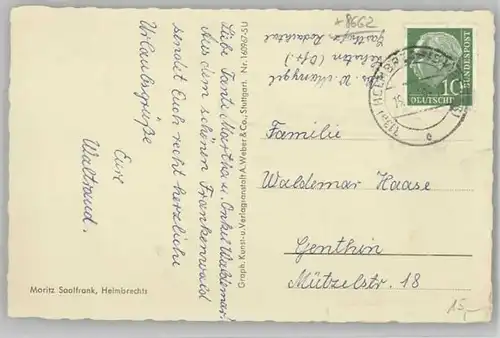 Liebe Tante Martha u. Onkel Waldemar!
Aus dem schönen Frankenwald
sendet Euch recht herzliche
Urlaubsgrüße
Eure
Waltraud.
Moritz Saalfrank, Helmbrechts
Graph. Kunst- u. Verlagsanstalt A. Weber & Co., Stuttgart.
* 8662
Gasthof
(Ofr.)
DEUTSCHE
BUNDESPOST
10
Familie
Waldemar Haase
Genthin
Mützelstr. 18
15,-